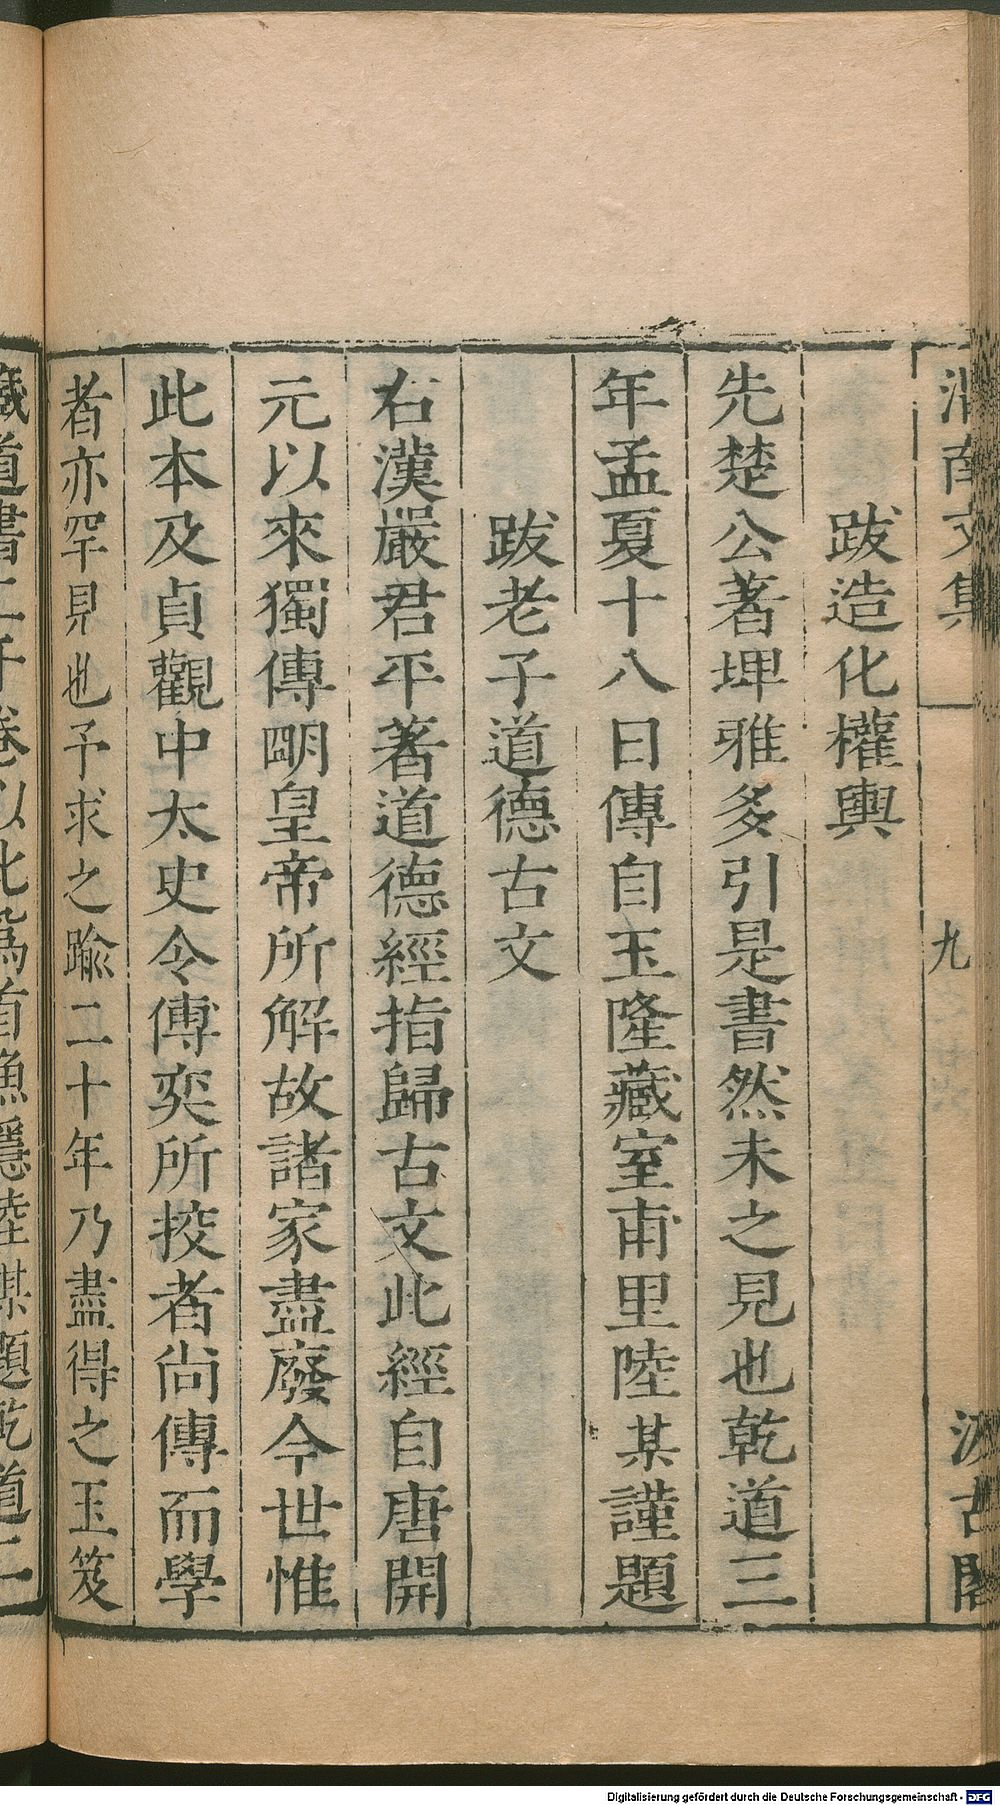 渭南文集
九
汲古閣
跋造化權輿
先楚公著埤雅多引是書然未之見也乾道三
年孟夏十八日傳自玉隆藏室甫里陸某謹題
跋老子道德古文
右漢嚴君平著道德經指歸古文此經自唐開
元以來獨傳明皇帝所解故諸家盡廢今世惟
此本及貞觀中太史令傅奕所挍者尚傳而學
者亦罕見也予求之踰二十年乃盡得之玉笈
藏道書二千卷以此爲首漁隱陸某題乾道二
Digitalisierung gefördert durch die Deutsche Forschungsgemeinschaft - DFG